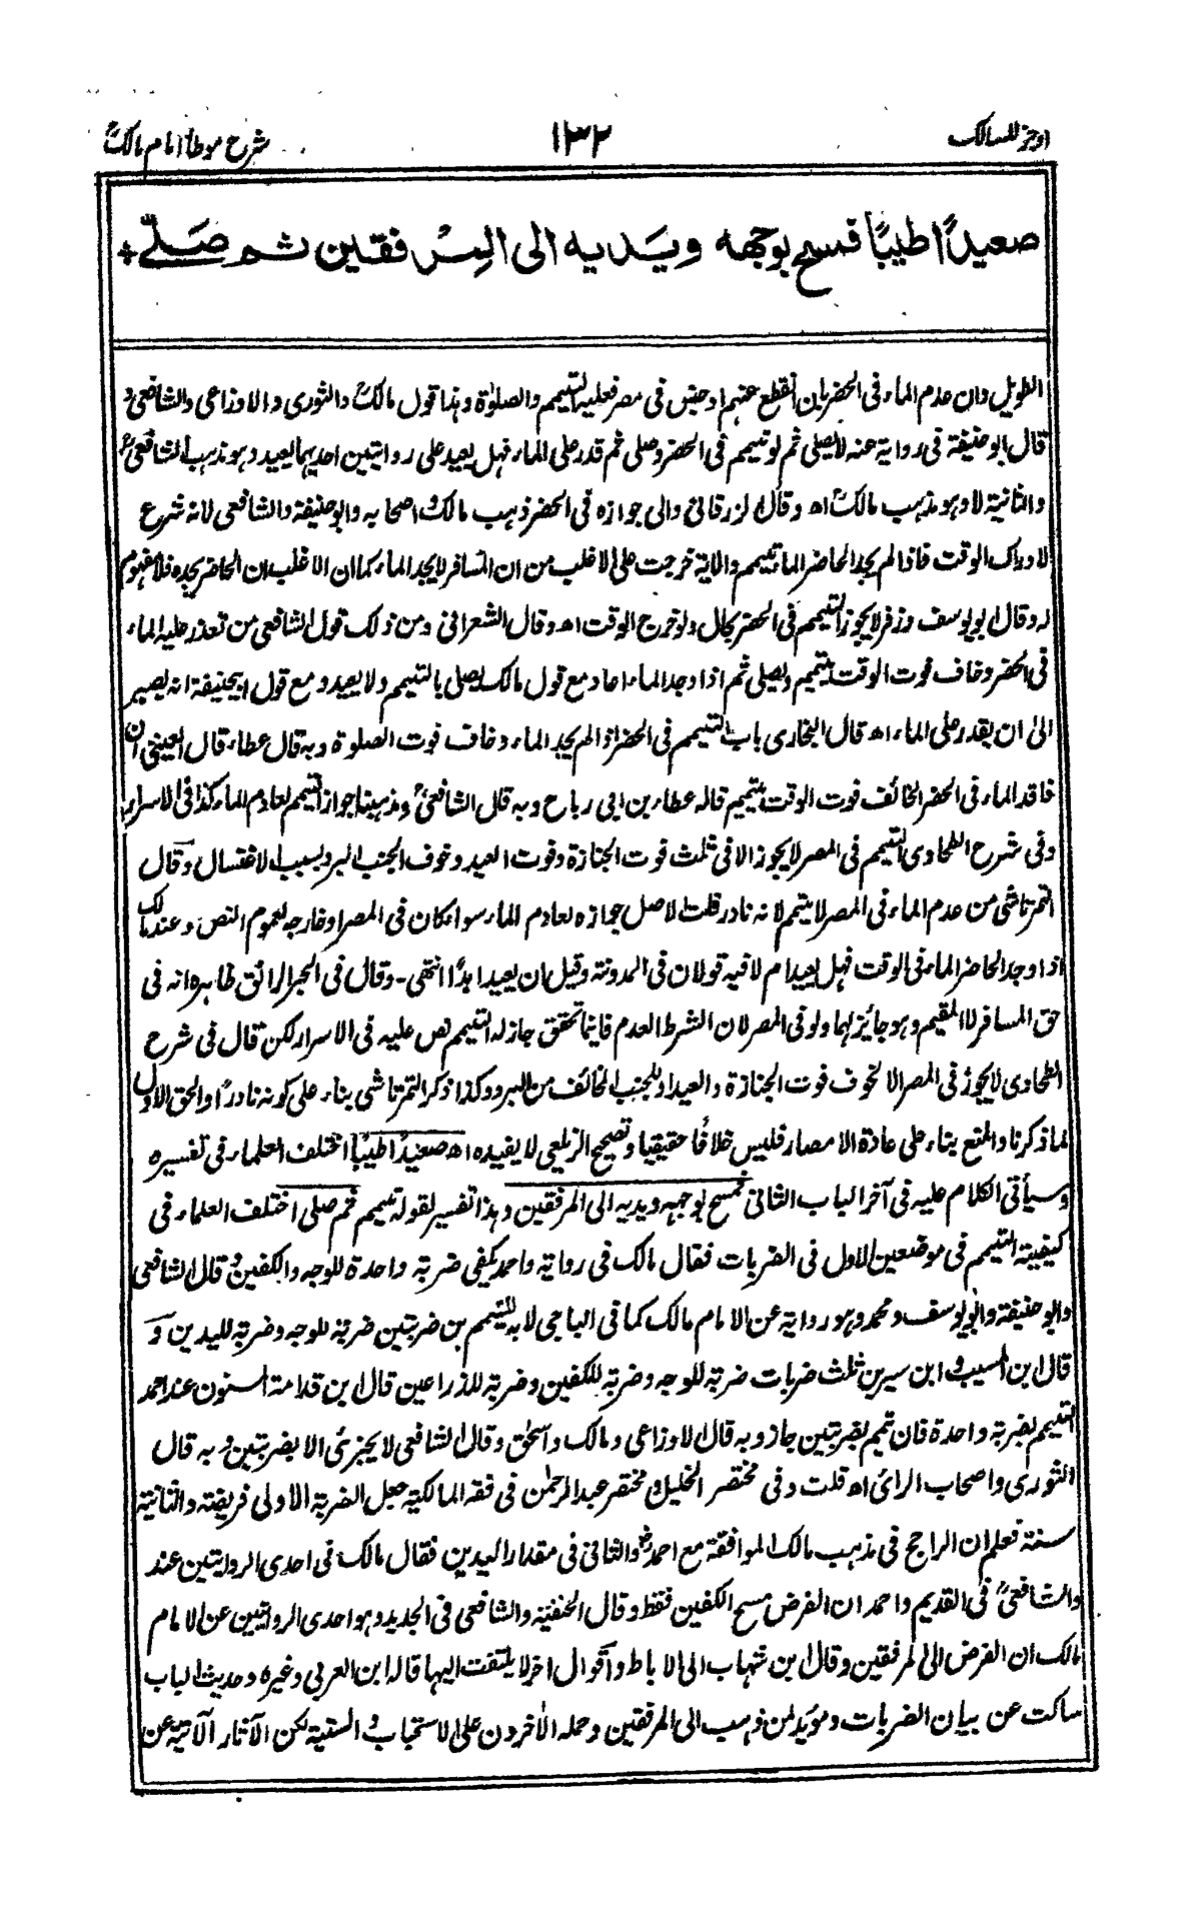 اوجز المسالك
١٣٢
شرح موطا امام مالكؒ
صعيدًا طيبًا فمسح بوجهه ويديه الى المرفقين ثم صلّے
الطويل وان عدم الماء فى الحضر بان انقطع عنهم او حبس فى مصر فعليه التيمم والصلوٰة وهذا قول مالكؒ والثورى والاوزاعى والشافعىؒ و
قال ابو حنيفة فى رواية عنه لا يصلى ثم لو تيمم فى الحضر وصلى ثم قدر على الماء فهل يعيد على روايتين احديهما يعيد وهو مذهب الشافعىؒ
والثانية لا وهو مذهب مالكؒ اھ وقال الزرقانى والى جوازه فى الحضر ذهب مالك واصحابه وابو حنيفة والشافعى لانه شرع
لادراك الوقت فاذا لم يجد الحاضر الماء تيمم والاية خرجت على الاغلب من ان المسافر لا يجد الماء كما ان الاغلب ان الحاضر يجده فلا مفهوم
له وقال ابو يوسف وزفر لا يجوز التيمم فى الحضر بحال ولو خرج الوقت اھ وقال الشعرانى ومن ذلك قول الشافعى من تعذر عليه الماء
فى الحضر وخاف فوت الوقت يتيمم ويصلى ثم اذا وجد الماء اعاد مع قول مالك يصلى بالتيمم ولا يعيد ومع قول ابيحنيفة انه يصبر
الىٰ ان يقدر على الماء اھ قال البخارى باب التيمم فى الحضر اذا لم يجد الماء وخاف فوت الصلوة وبه قال عطاء قال العينى ان
فاقد الماء فى الحضر الخائف فوت الوقت يتيمم قاله عطاء بن ابى رباح وبه قال الشافعىؒ ومذهبنا جواز التيمم لعادم الماء كذا فى الاسرار
وفى شرح الطحاوى التيمم فى المصر لا يجوز الا فى ثلث فوت الجنازة وفوت العيد وخوف الجنب البرد بسبب الاغتسال وقال
التمرتاشى من عدم الماء فى المصر لا يتيمم لانه نادر قلت الاصل جوازه لعادم الماء سواء كان فى المصر او خارجه لعموم النص وعند مالك
اذا وجد الحاضر الماء فى الوقت فهل يعيد ام لا فيه قولان فى المدونة وقيل ان يعيد ابدًا انتهى ـ وقال فى البحر الرائق ظاهره انه فى
حق المسافر لا المقيم وهو جائز لهما ولو فى المصر لان الشرط العدم فاينما تحقق جاز له التيمم نص عليه فى الاسرار لكن قال فى شرح
الطحاوى لا يجوز فى المصر الا لخوف فوت الجنازة والعيد او للجنب الخائف من البرد وكذا ذكر التمرتاشى بناء على كونه نادرًا والحق الاول
لما ذكرنا والمنع بناء على عادة الامصار فليس خلافًا حقيقيا وتصحيح الزيلعى لا يفيده اھ صعيدًا طيبًا اختلف العلماء فى تفسيره
وسيأتى الكلام عليه فى آخر الباب الثانى فمسح بوجهه ويديه الى المرفقين وهذا تفسير لقوله تيمم ثم صلى اختلف العلماء فى
كيفية التيمم فى موضعين الاول فى الضربات فقال مالك فى رواية واحمد يكفى ضربة واحدة للوجه والكفين وقال الشافعى
وابو حنيفة وابو يوسف ومحمد وهو رواية عن الامام مالك كما فى الباجى لابد للتيمم من ضربتين ضربة للوجه وضربة لليدين و
قال ابن المسيب وابن سيرين ثلث ضربات ضربة للوجه وضربة للكفين وضربة للذراعين قال ابن قدامة المسنون عند احمد
التيمم بضربة واحدة فان تيمم بضربتين جاز وبه قال الاوزاعى ومالك واسحٰق وقال الشافعى لا يجزئ الا بضربتين وبه قال
الثورى واصحاب الرائ اھ قلت وفى مختصر الخليل ومختصر عبد الرحمٰن فى فقه المالكية جعل الضربة الاولى فريضة والثانية
سنة فعلم ان الراجح فى مذهب مالك الموافقة مع احمد والثانى فى مقدار اليدين فقال مالك فى احدى الروايتين عند
والشافعىؒ فى القديم واحمد ان الفرض مسح الكفين فقط وقال الحنفية والشافعى فى الجديد وهو احدى الروايتين عن الامام
مالك ان الفرض الى المرفقين وقال ابن شهاب الى الاباط واقوال اخر لا يلتفت اليها قاله ابن العربى وغيره وحديث الباب
ساكت عن بيان الضربات ومؤيد لمن ذهب الى المرفقين وحمله الاٰخرون على الاستحباب والسنية لكن الآثار الآتية عن